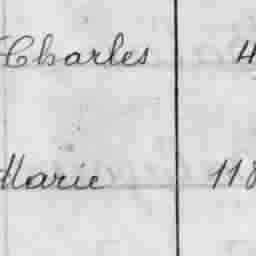 Charles 4
Marie 118